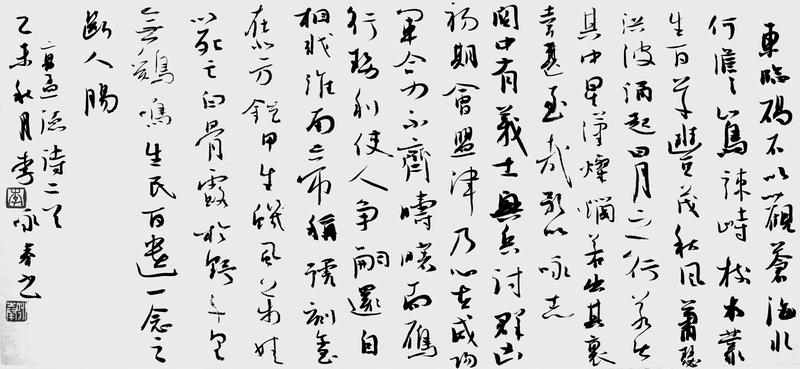 東臨碣石以觀蒼海水
何澹澹山島竦峙樹木叢
生百草豐茂秋風蕭瑟
洪波涌起日月之行若出
其中星漢燦爛若出其裏
幸甚至哉歌以咏志
関中有義士興兵討群凶
初期會盟津乃心在咸陽
軍合力不齊躊躇而雁
行勢利使人爭嗣還自
相戕淮南帝稱號刻璽
在北方鎧甲生蟣虱萬姓
以死亡白骨露於野千里
無鷄鳴生民百遺一念之
斷人腸
曹孟德詩二首
乙未秋月李咏春書